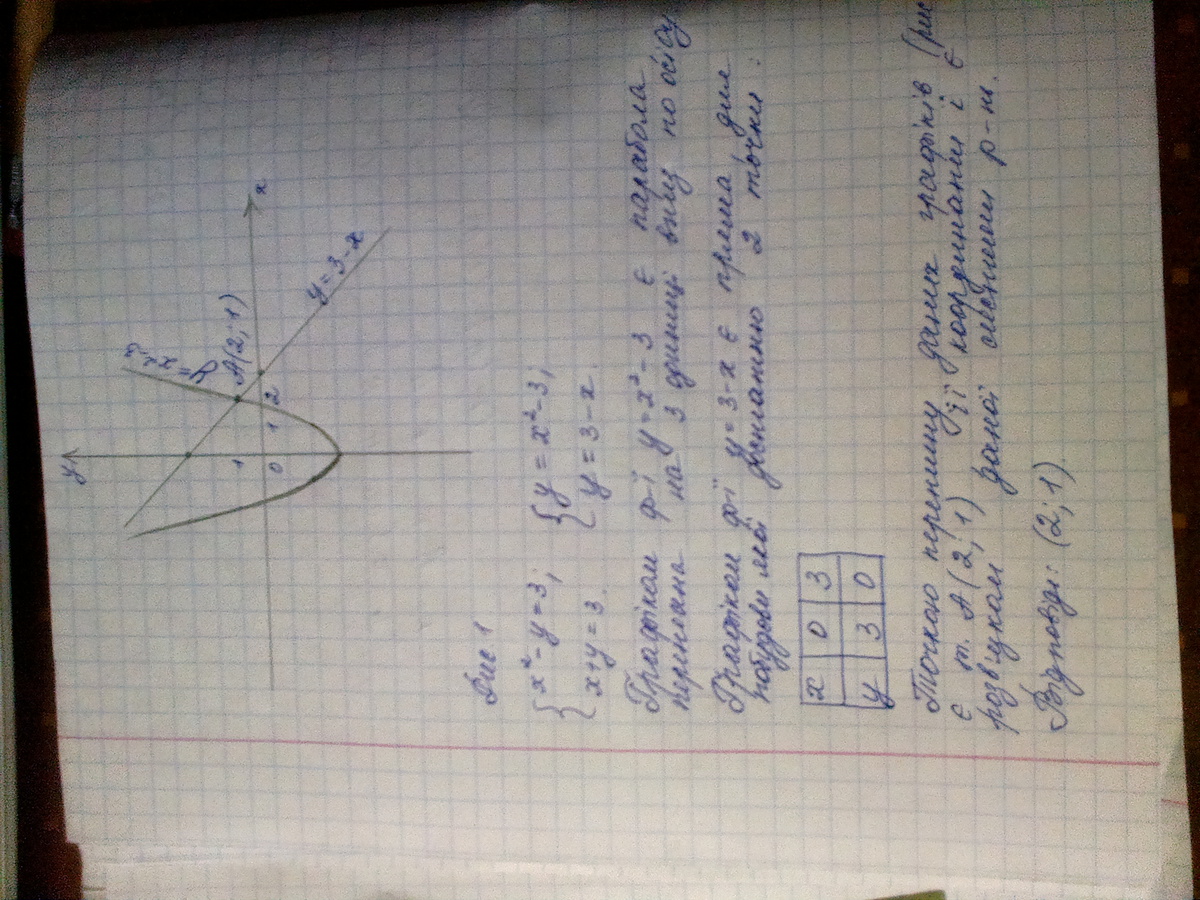 y
y=x²-3
A(2;1)
1
0
1
2
x
y=3-x
Рис. 1
{x²-y=3; {y=x²-3;
x+y=3. y=3-x.
Графіком ф-ї y=x²-3 є парабола
на 3 одиниці вниз по осі Oy
Графіком ф-ї y=3-x є пряма для
побудови якої достатньо 2 точки:
x 0 3
y 3 0
Точкою перетину даних графіків (рис
є т. A(2;1) її координати і є
розв'язком даної системи р-нь.
Відповідь: (2;1).